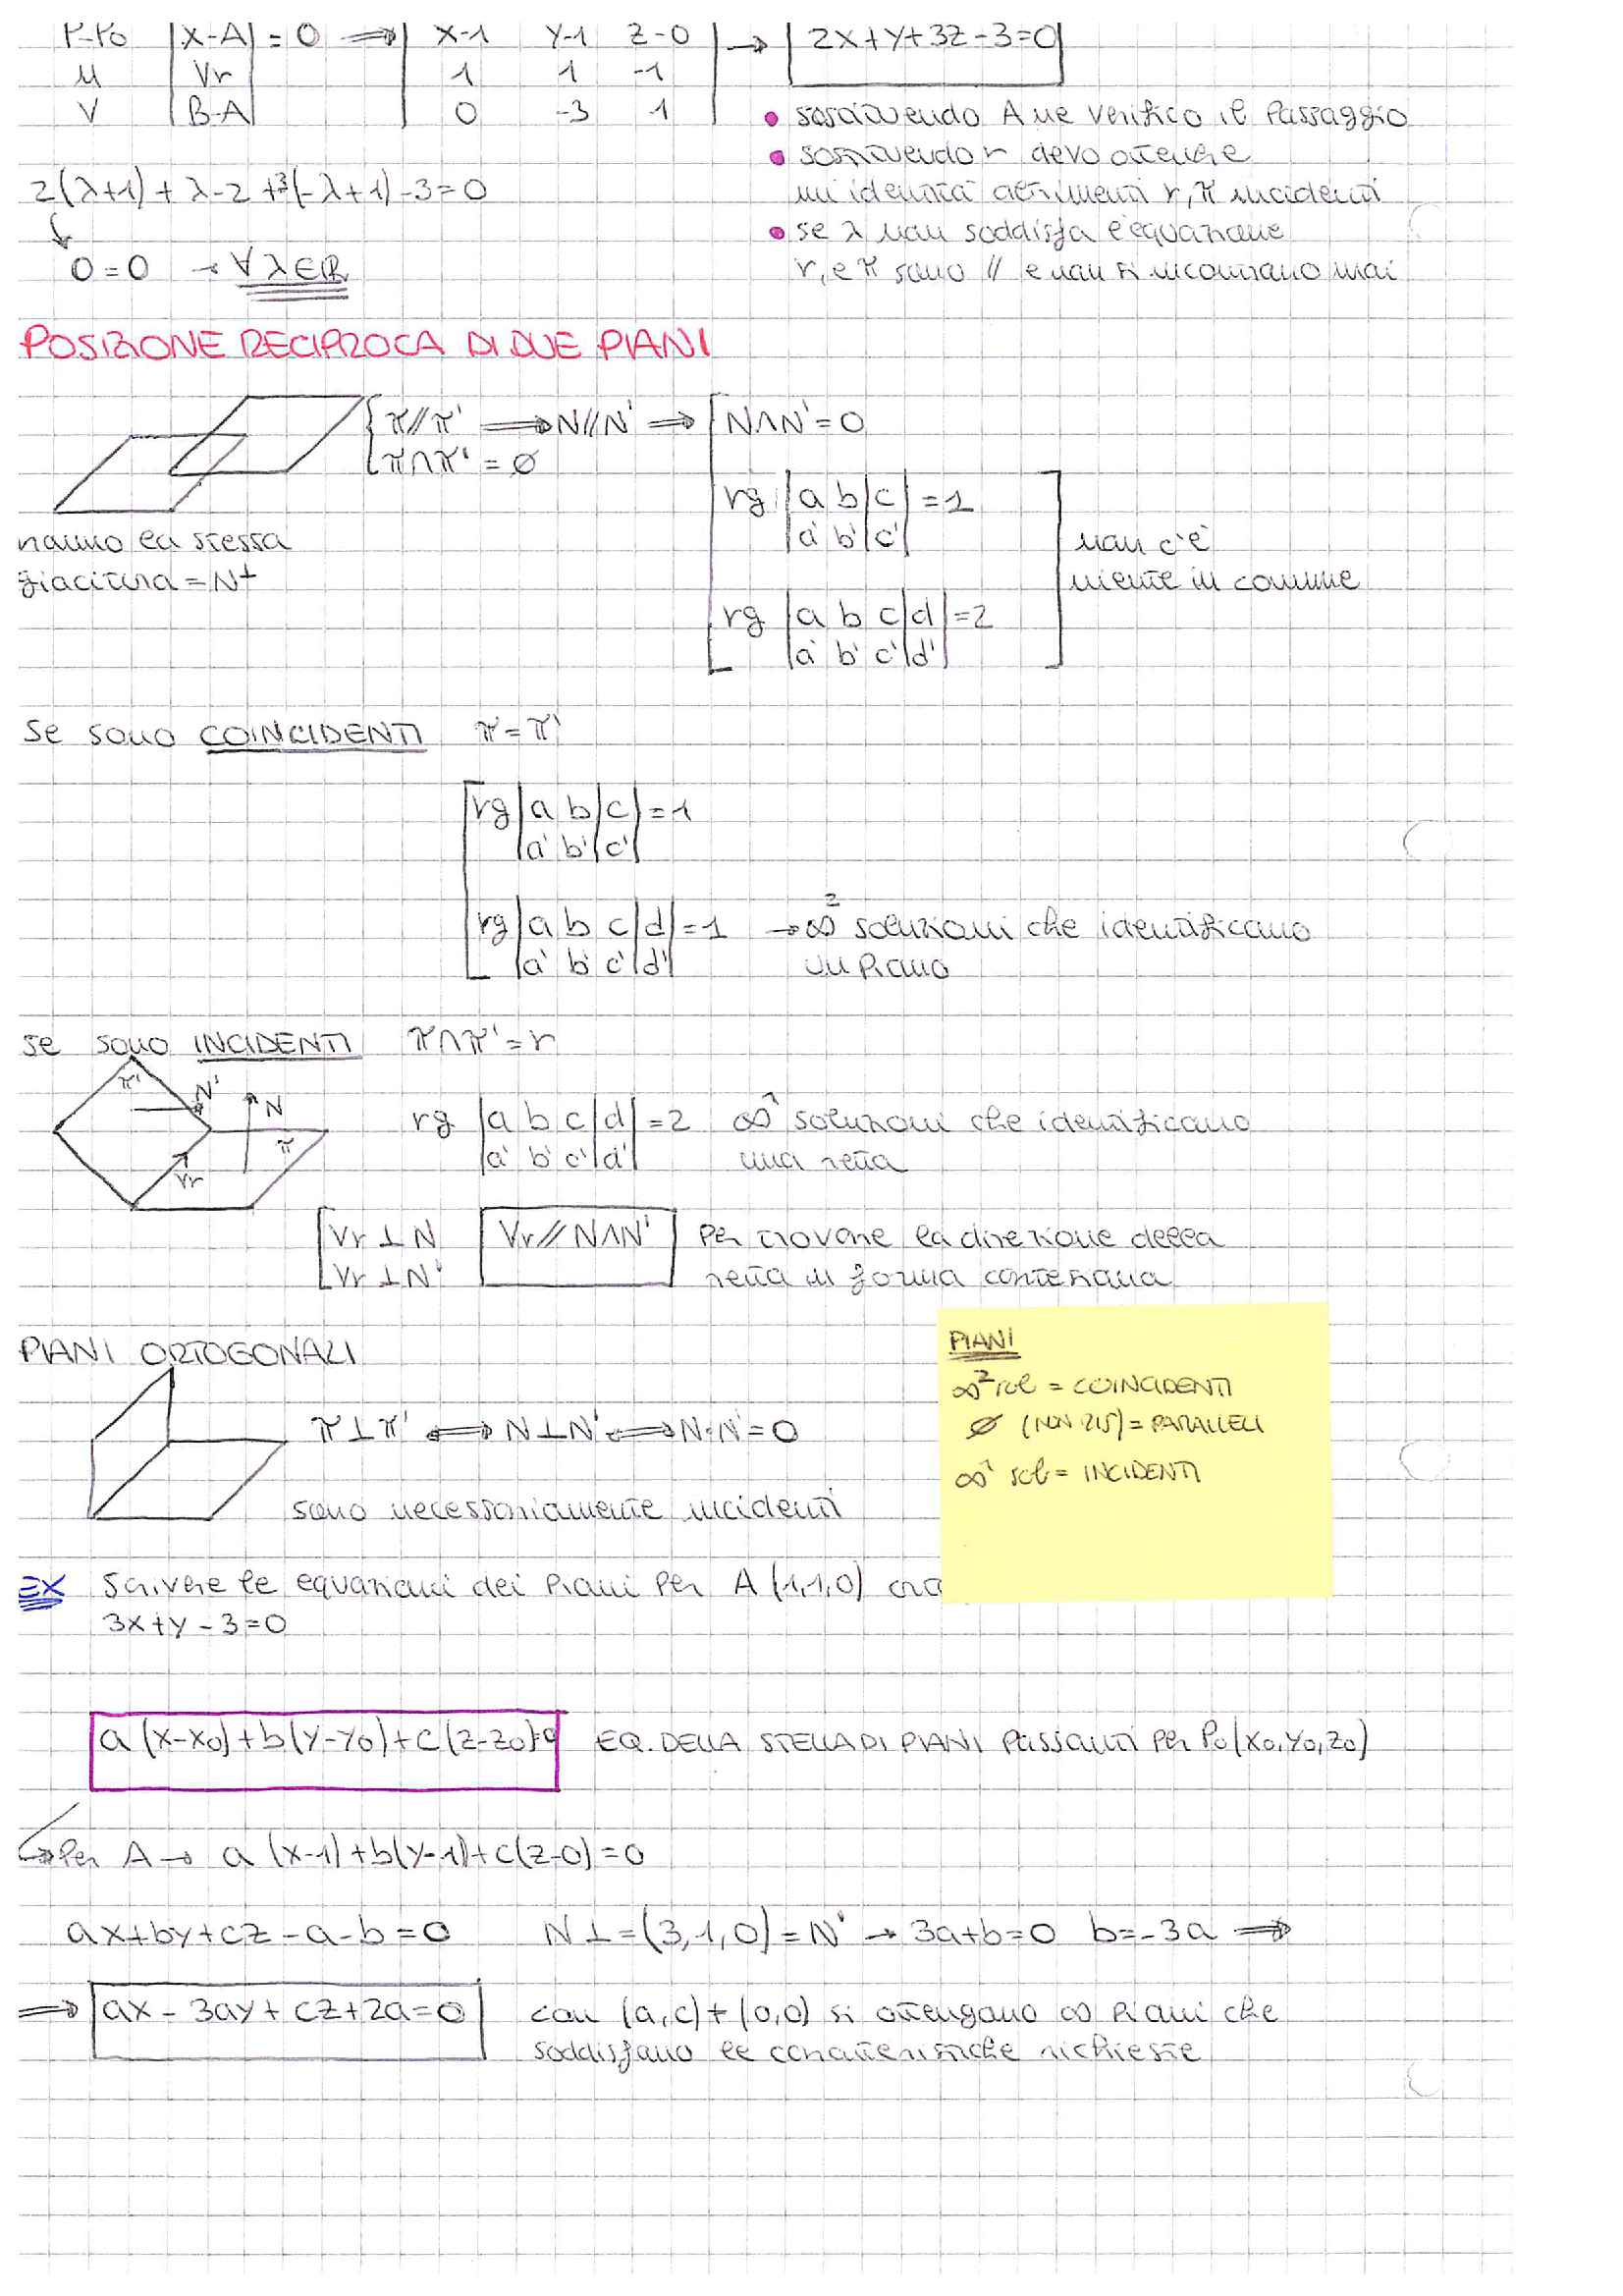 P-P₀ |X-A| = 0 ⟹ | x-1 y-1 z-0 | → | 2x+y+3z-3=0 |
u | Vr | | 1 1 -1 |
v | B-A | | 0 -3 1 |
• sostituendo A ne verifico il passaggio
• sostituendo r devo ottenere
2(λ+1)+λ-2+3(-λ+1)-3=0
un'identità altrimenti r, π incidenti
• se λ non soddisfa l'equazione
0=0 → ∀ λ∈ℝ
r, e π sono // e non si incontrano mai
POSIZIONE RECIPROCA DI DUE PIANI
{ π//π' ⟹ N//N' ⟹ [ N∧N'=0
π∩π'=∅
rg |a b|c| =1
|a' b'|c'|
hanno la stessa
non c'è
giacitura = N⊥
niente in comune
rg |a b c|d| =2
|a' b' c'|d'|
se sono COINCIDENTI π=π'
rg |a b|c| =1
|a' b'|c'|
rg |a b c|d| =1 → ∞² soluzioni che identificano
|a' b' c'|d'| un piano
se sono INCIDENTI π∩π'=r
π' N' N π Vr
rg |a b c|d| =2 ∞¹ soluzioni che identificano
|a' b' c'|d'| una retta
Vr ⊥ N | Vr // N∧N' | per trovare la direzione della
Vr ⊥ N' retta in forma cartesiana
PIANI ORTOGONALI
π⊥π' ⟺ N⊥N' ⟺ N·N'=0
sono necessariamente incidenti
PIANI
∞² sol = COINCIDENTI
∅ (NON RIS) = PARALLELI
∞¹ sol = INCIDENTI
EX Scrivere le equazioni dei piani per A (1,1,0)
3x+y-3=0
a(x-x₀)+b(y-y₀)+c(z-z₀)=0 EQ. DELLA STELLA DI PIANI passanti per P₀(x₀,y₀,z₀)
↳ per A → a(x-1)+b(y-1)+c(z-0)=0
ax+by+cz-a-b=0 N⊥=(3,1,0)=N' → 3a+b=0 b=-3a ⟹
⟹ | ax-3ay+cz+2a=0 | con (a,c)≠(0,0) si ottengono ∞ piani che
soddisfano le caratteristiche richieste